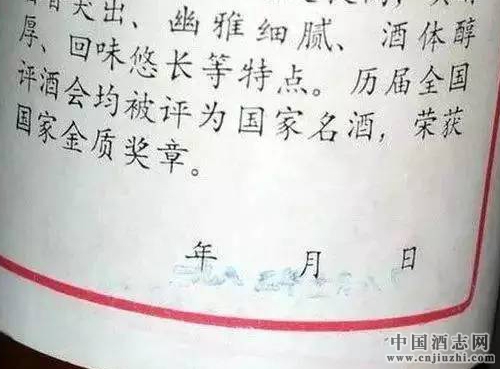 厚、回味悠长等特点。历届全国
评酒会均被评为国家名酒，荣获
国家金质奖章。
年 月 日
中国酒志网
www.cnjiuzhi.com